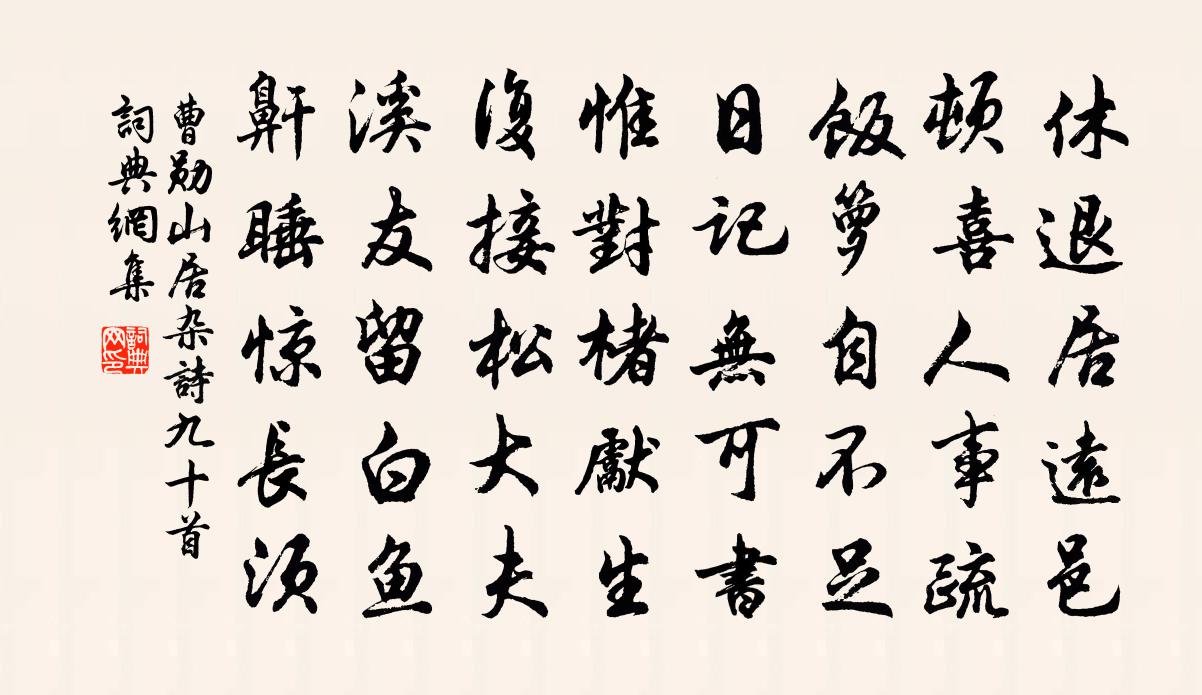 休退居遠邑
頓喜人事疏
飯籮自不足
日記無可書
惟對楮獻生
復接松大夫
溪友留白魚
鼾睡惊長須
曹勛山居杂詩九十首
詞典網集
詞典
网印